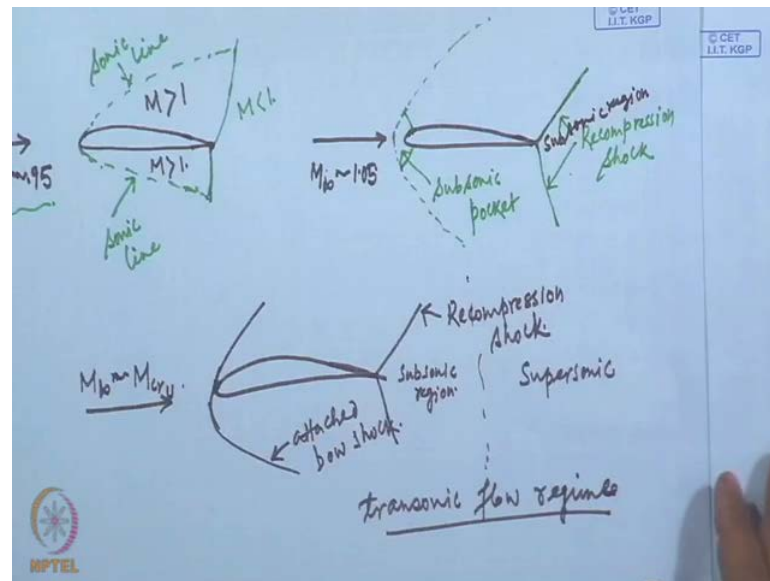 © CET
I.I.T. KGP
© CET
I.I.T. KGP
sonic
line
M>1
M<1.
M>1.
.95
sonic
line
M∞~1.05
subsonic
pocket
subsonic region
Recompression
shock
M∞~Mcru.
attached
bow shock.
Recompression
shock.
subsonic
region.
Supersonic
transonic flow regimes
NPTEL